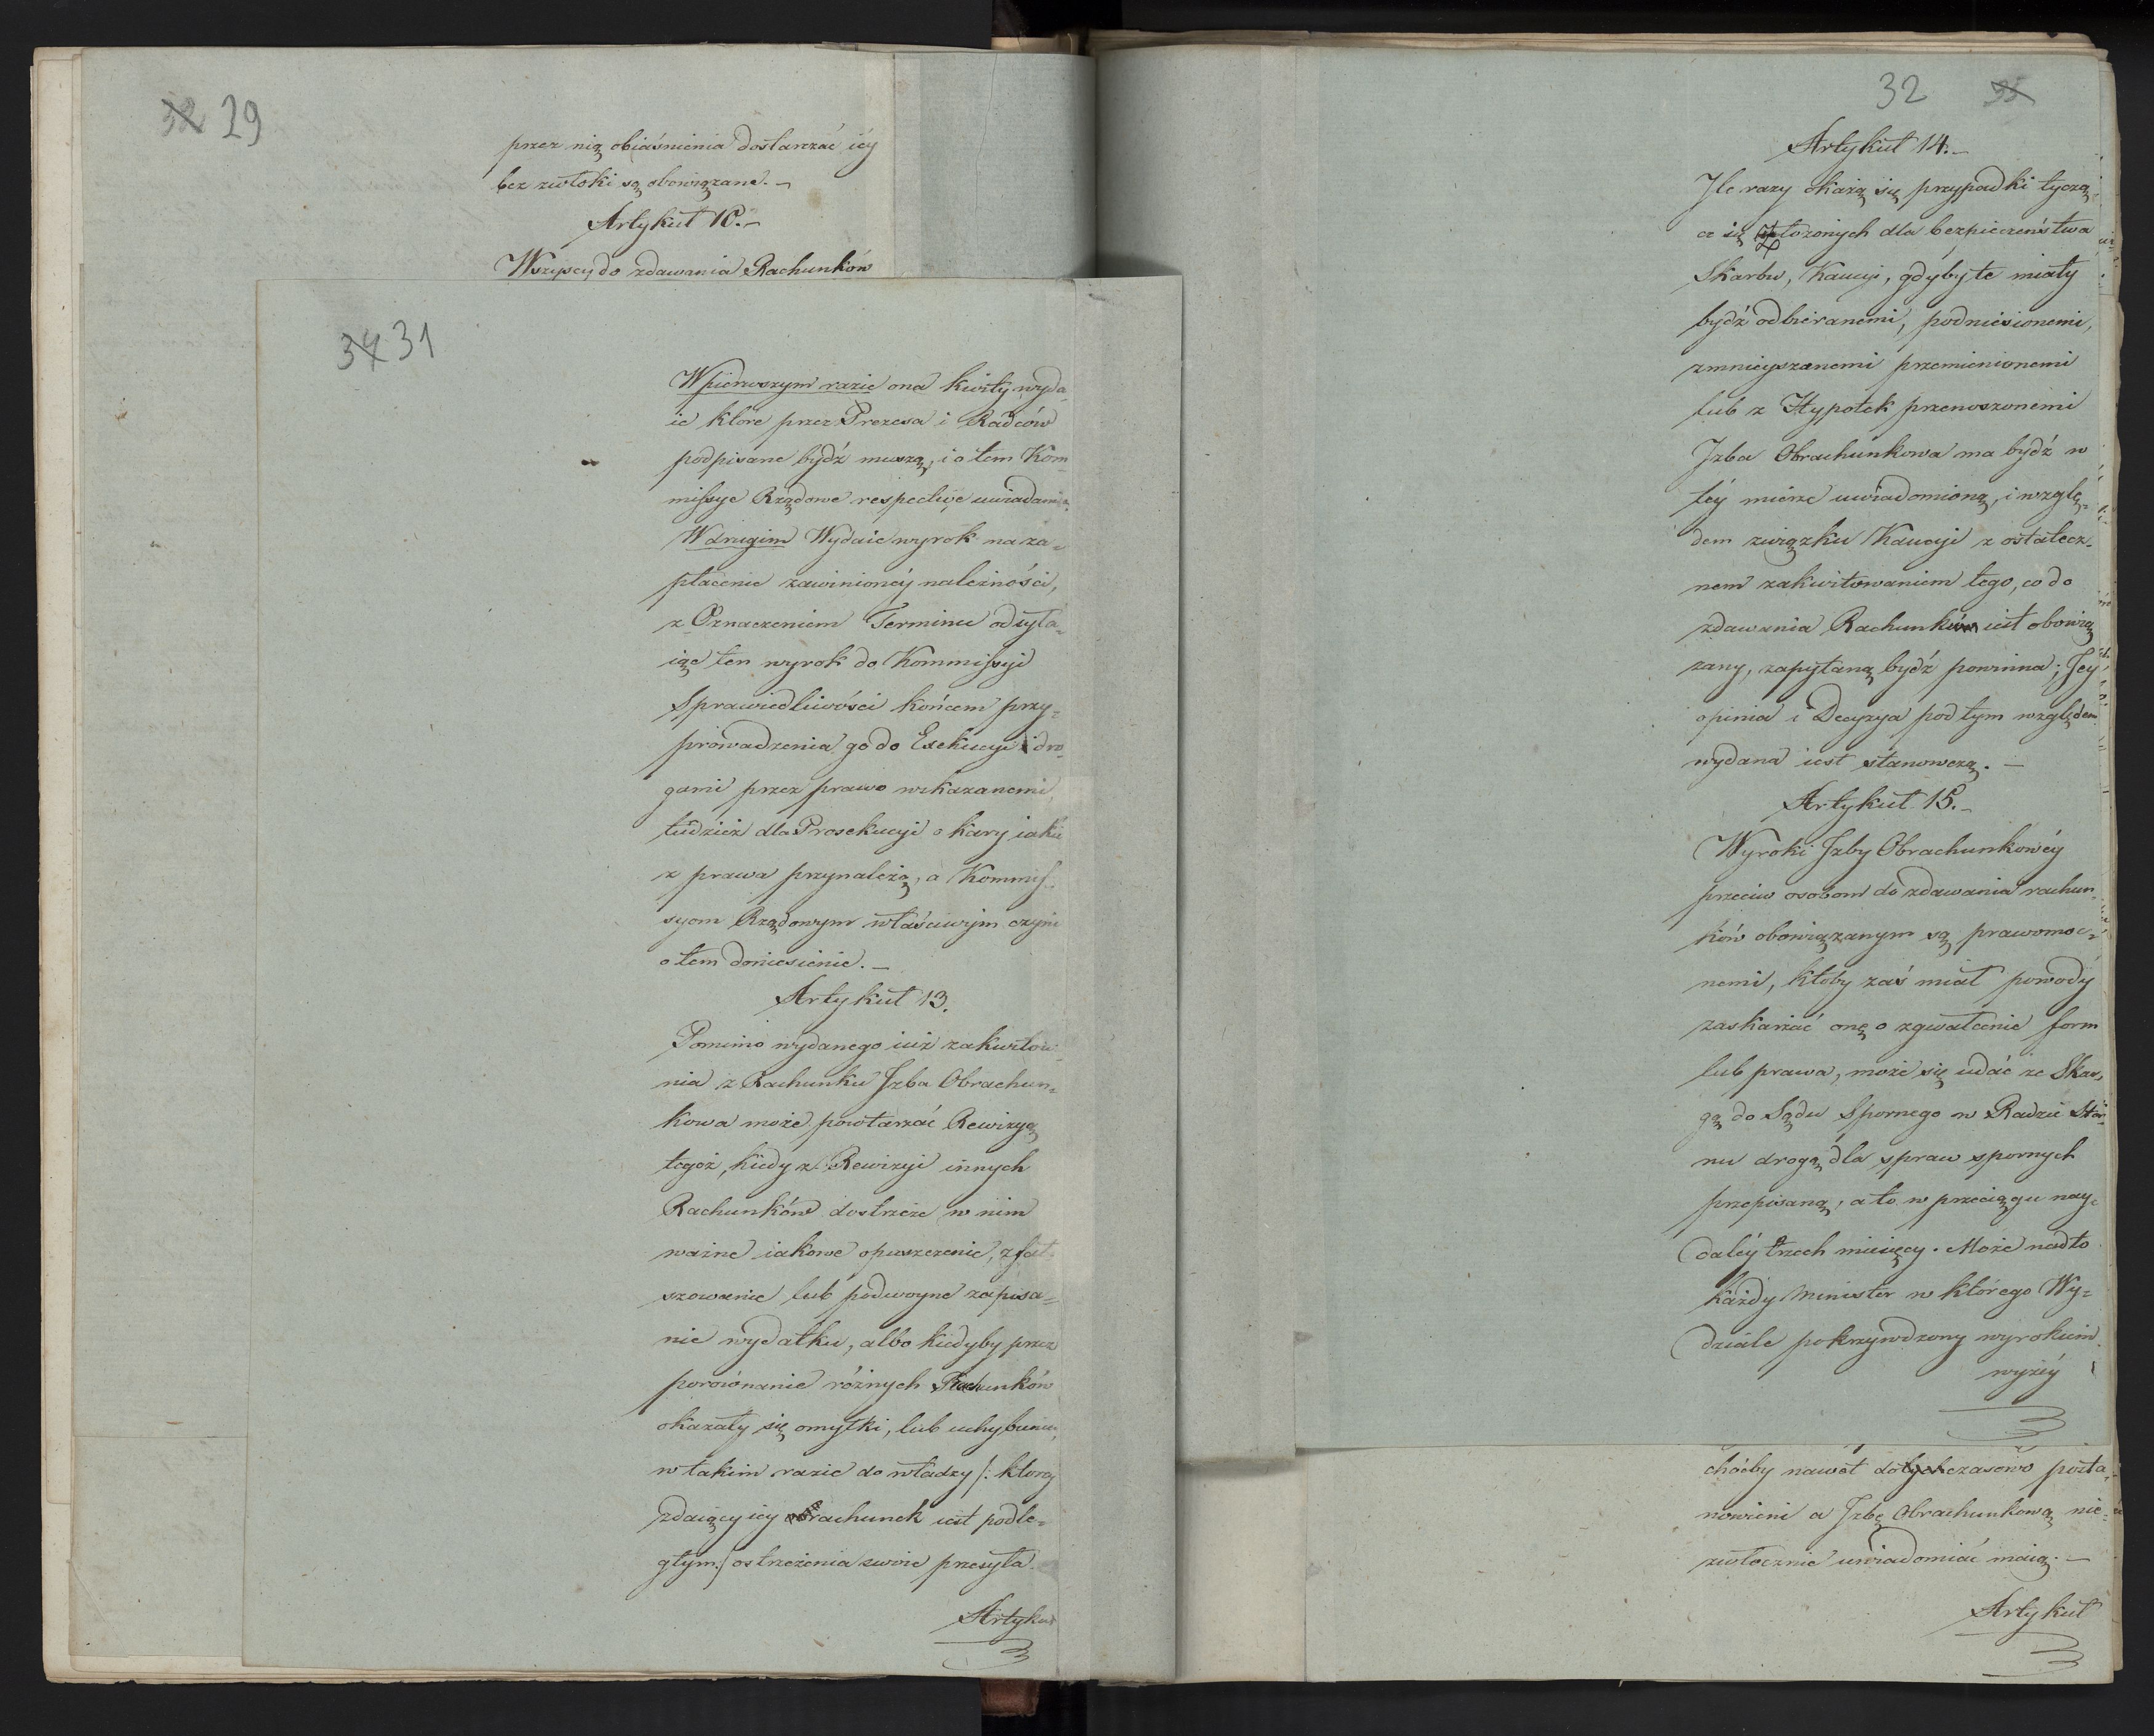 32 29
przez nią obiaśnienia dostarczać iéy
bez zwłoki są obowiązane. –
Artykuł 10. –
Wszyscy do zdawania Rachunków
34 31
W pierwszym razie ona kwity wyda=
ie które przez Prezesa i Radców
podpisane bydź muszą, i o tem Kom=
missye Rządowe respective uwiadamia.
W drugim Wydaie wyrok na za=
płacenie zawinionéy należności,
z Oznaczeniem Terminu odsyła=
iąc ten wyrok do Kommissyi
Sprawiedliwości końcem przy=
prowadzenia go do Exekucyi dro=
gami przez prawo wskazanemi,
tudzież dla Prosekucyi o kary iakie
z prawa przynależą, a Kommis=
syom Rządowym właściwym czyni
o tem doniesienie. –
Artykuł 13.
Pomimo wydanego iuż zakwitow=
nia z Rachunku Izba Obrachun=
kowa może powtarzać Rewizyą
tegoż, kiedy z Rewizyi innych
Rachunków dostrzeże w nim
ważne iakowe opuszczenie, zfał=
szowanie lub podwoyne zapisa=
nie wydatku, albo kiedyby przez
porównanie różnych Rachunków
okazały się omyłki, lub uchybienia,
w takim razie do władzy /: ktorey
zdaiący iey rachunek iest podle=
głym :/ ostrzeżenia swoie przesyła.
Artykuł
32 35
Artykuł 14. –
Ile razy okażą się przypadki tyczą=
ce się złożonych dla bezpieczeństwa
Skarbu, Kaucyi, gdyby te miały
bydź odbieranemi, podniesionemi,
zmnieyszanemi przemienionemi
lub z Hypotek przenoszonemi
Izba Obrachunkowa ma bydź w
téy mierze uwiadomioną, i wzglę=
dem związku Kaucyi z ostatecz=
nem zakwitowaniem tego, co do
zdawania Rachunków iest obowią
zany, zapytaną bydź powinna; Jey
opinia i Decyzya pod tym względem
wydana iest stanowczą. –
Artykuł 15. –
Wyroki Izby Obrachunkowéy
przeciw osobom do zdawania rachun=
ków obowiązanym są prawomoc=
nemi, ktoby zaś miał powody
zaskarżać onę o zgwałcenie form
lub prawa, może się udać ze Skar=
gą do Sądu Spornego w Radzie Sta=
nu drogą dla spraw spornych
przepisaną, a to w przeciągu nay=
daléy trzech miesięcy. Może nadto
każdy Minister w którego Wy=
dziale pokrzywdzony wyrokiem
wyżéy
choćby nawet dotychczasowo posta=
nowieni a Izbę Obrachunkową nie=
zwłocznie uwiadomiać maią. –
Artykuł